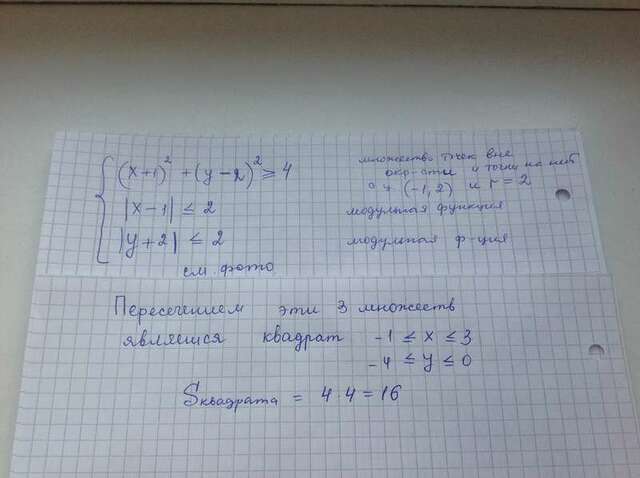 (x+1)² + (y-2)² ≥ 4
множество точек вне
окр-сти и точки на ней
с ч. (-1, 2) и r = 2
|x-1| ≤ 2 модульная функция
|y+2| ≤ 2 модульная ф-ция
см. фото
Пересечением эти 3 множеств
является квадрат -1 ≤ x ≤ 3
-4 ≤ y ≤ 0
Sквадрата = 4·4=16